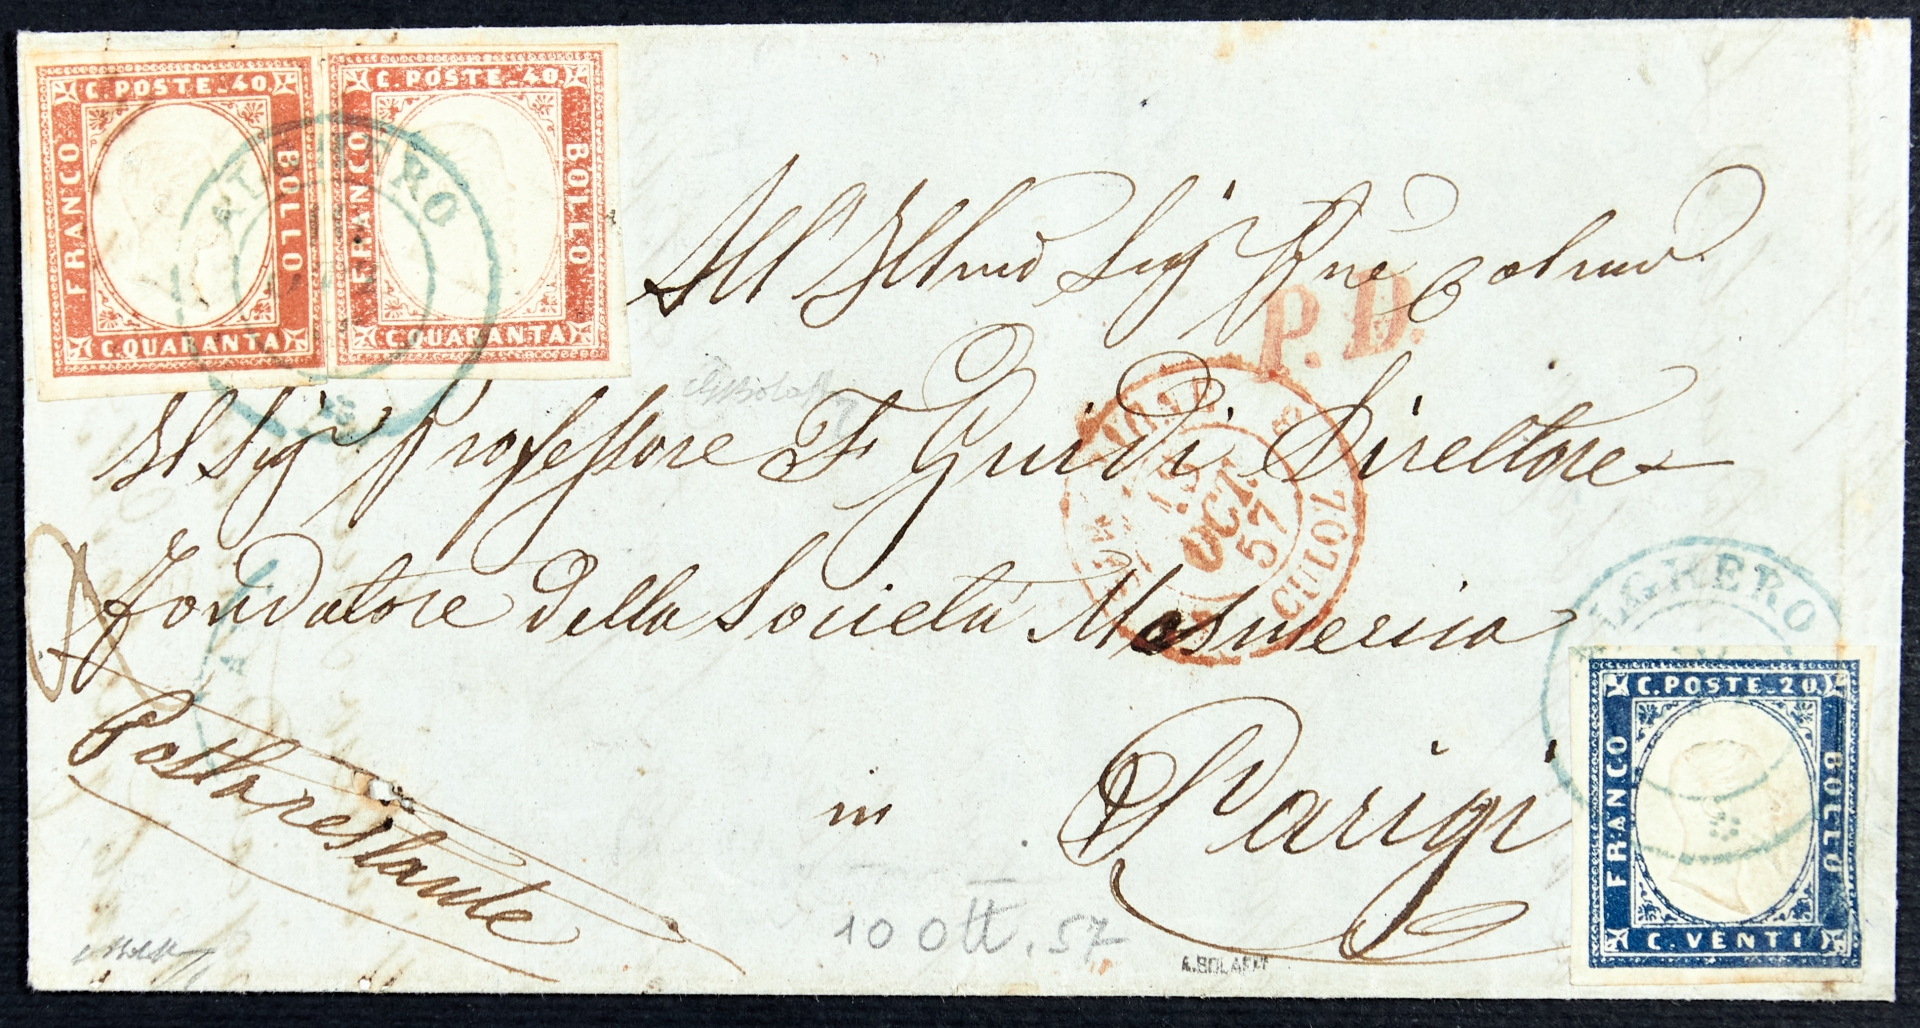 C. POSTE. 40.
FRANCO
BOLLO
C. QUARANTA
C. POSTE. 40.
FRANCO
BOLLO
C. QUARANTA
ALGHERO
All' Illmo Sig Pne Colmo
P.D.
Il Sig Professore F Guidi Direttore
13
OCT.
57
CULOZ
Fondatore della Società Mesmerica
Posta restante
in Parigi
ALGHERO
C. POSTE. 20.
FRANCO
BOLLO
C. VENTI
10 Ott. 57
A.BOLAFFI